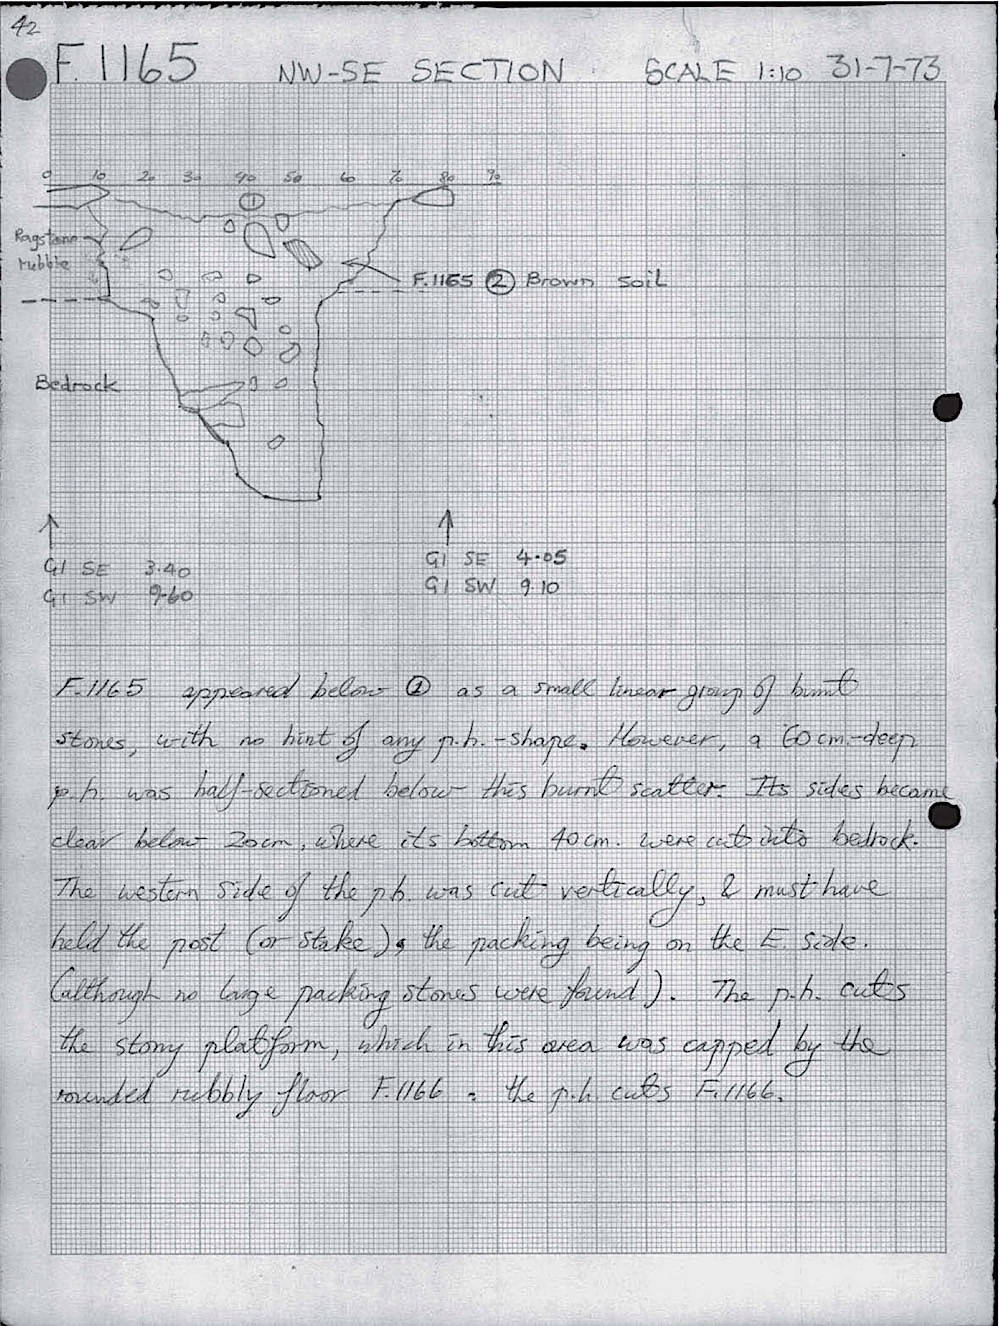 42
F.1165 NW-SE SECTION SCALE 1:10 31-7-73
0 10 20 30 40 50 60 70 80 90
1
Ragstone
rubble
F.1165 2 Brown soil
Bedrock
G1 SE 3.40
G1 SW 9.60
G1 SE 4.05
G1 SW 9.10
F.1165 appeared below 1 as a small linear group of burnt
stones, with no hint of any p.h.-shape. However, a 60cm.-deep
p.h. was half-sectioned below this burnt scatter. Its sides became
clear below 20cm, where its bottom 40cm. were cut into bedrock.
The western side of the p.h. was cut vertically, & must have
held the post (or stake), the packing being on the E. side.
(although no large packing stones were found). The p.h. cuts
the stony platform, which in this area was capped by the
rounded rubbly floor F.1166 : the p.h. cuts F.1166.